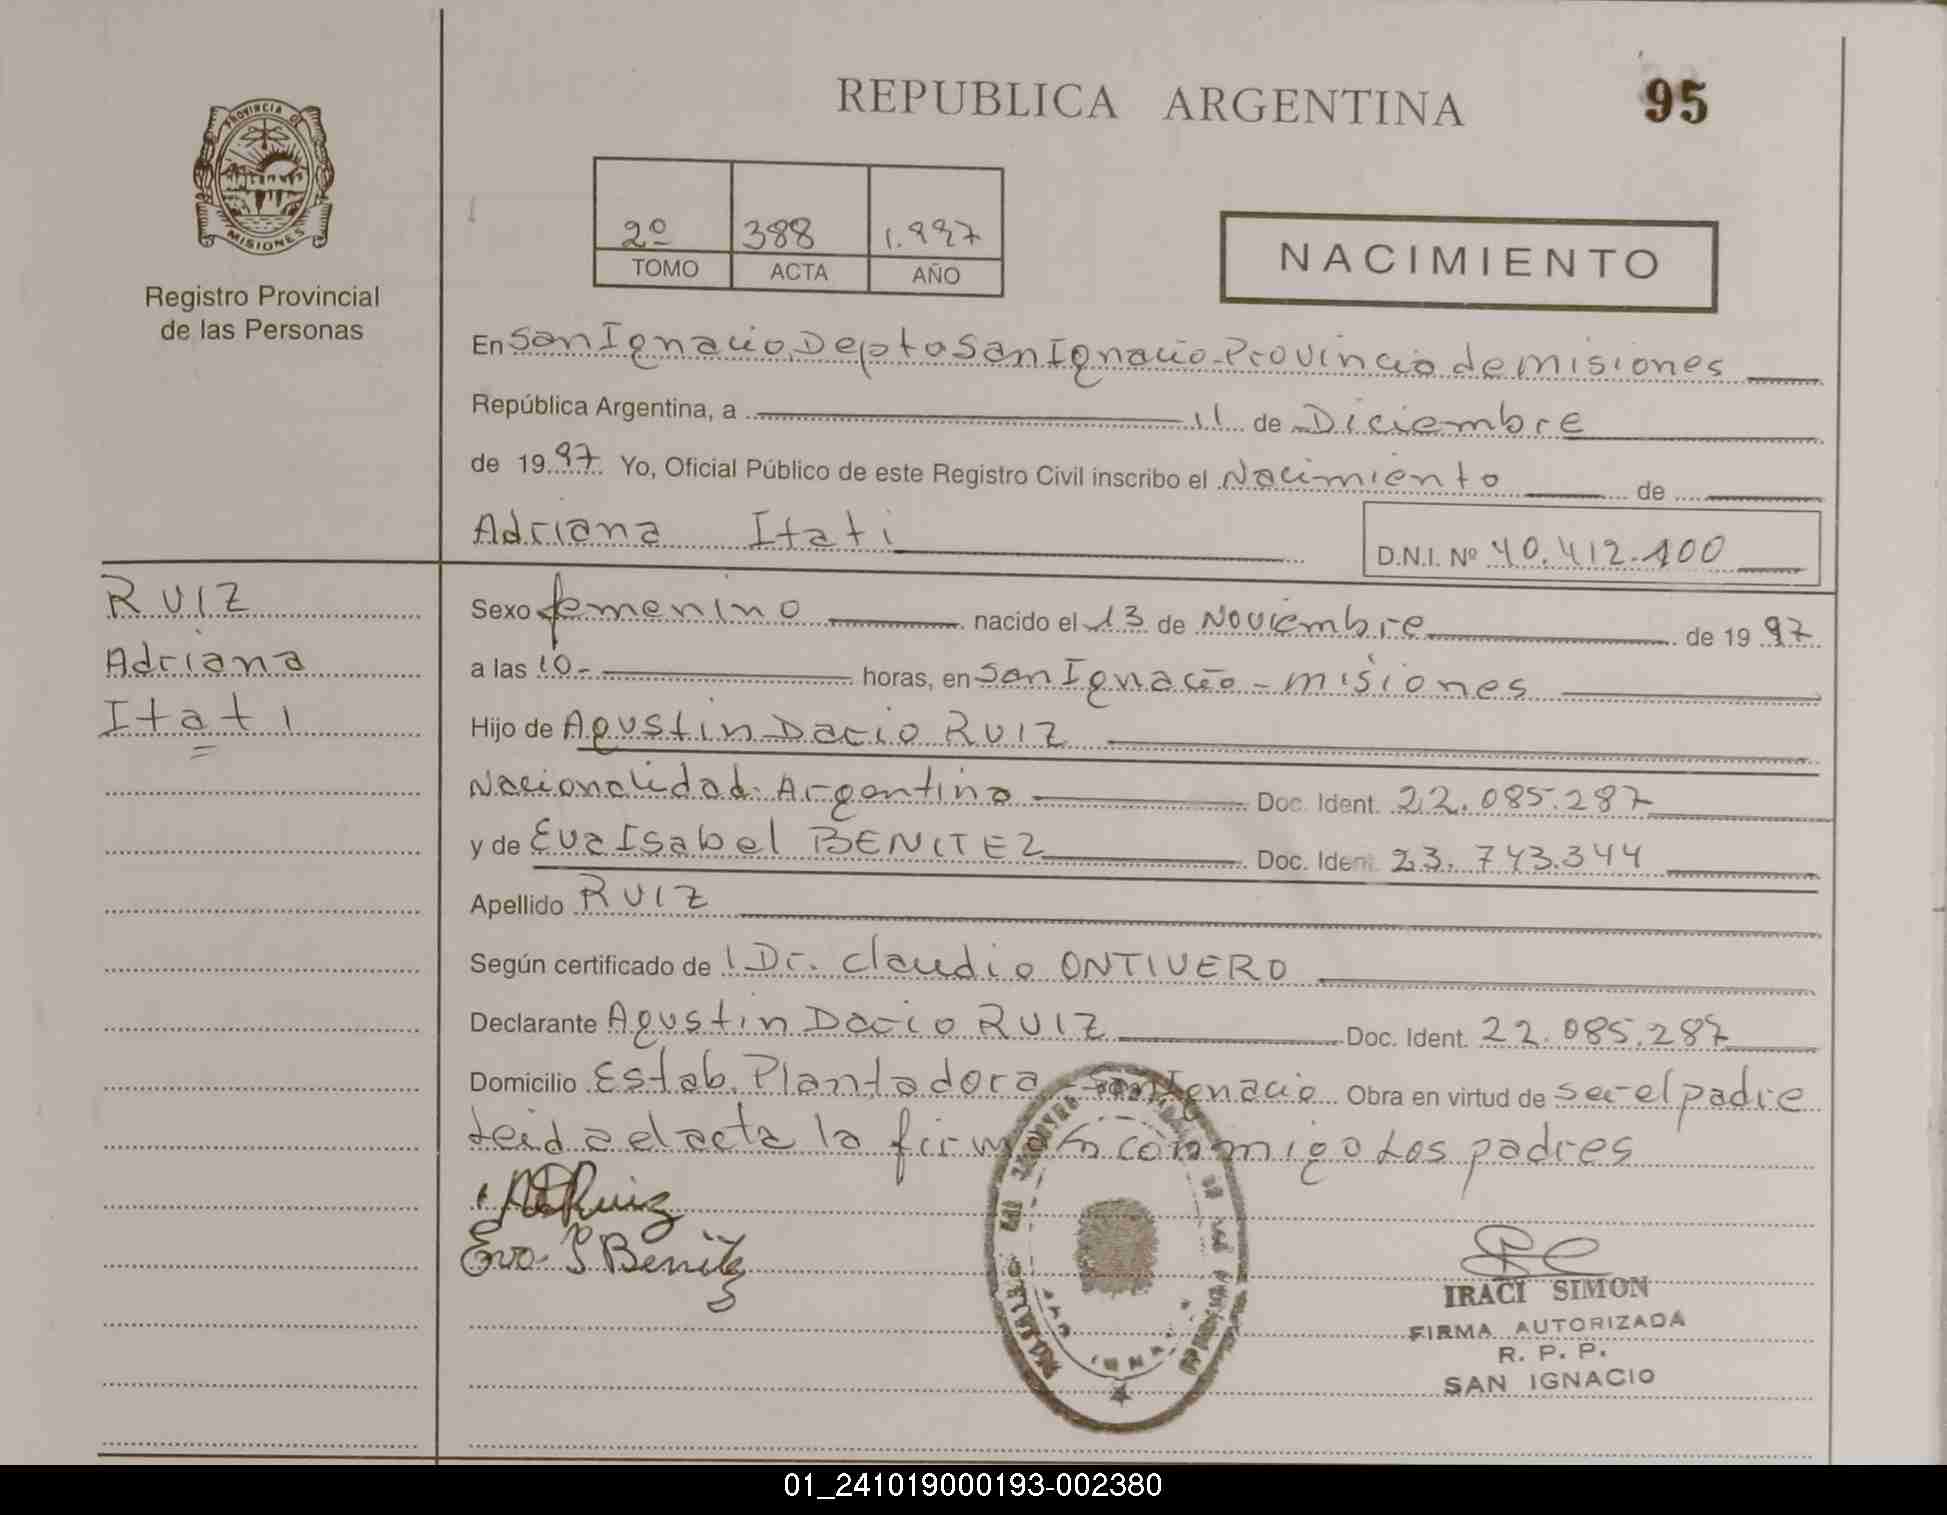 REPUBLICA ARGENTINA
95
PROVINCIA DE
MISIONES
Registro Provincial
de las Personas
2º 388 1.997
TOMO ACTA AÑO
NACIMIENTO
En San Ignacio, Depto San Ignacio - Provincia de misiones
República Argentina, a 11 de Diciembre
de 1997 Yo, Oficial Público de este Registro Civil inscribo el Nacimiento de
Adriana Itati
D.N.I. Nº 40.412.100
RUIZ
Adriana
Itati
Sexo femenino nacido el 13 de Noviembre de 1997
a las 10- horas, en San Ignacio - misiones
Hijo de Agustin Dacio RUIZ
Nacionalidad: Argentina Doc. Ident. 22.085.287
y de Eva Isabel BENITEZ Doc. Ident. 23.743.344
Apellido RUIZ
Según certificado de Dr. Claudio ONTIVERO
Declarante Agustin Dacio RUIZ Doc. Ident. 22.085.287
Domicilio Estab. Plantadora - San Ignacio Obra en virtud de ser el padre
Leida el acta la firman conmigo Los padres
Ruiz
Eva I Benitez
IRACI SIMON
FIRMA AUTORIZADA
R. P. P.
SAN IGNACIO
01_241019000193-002380